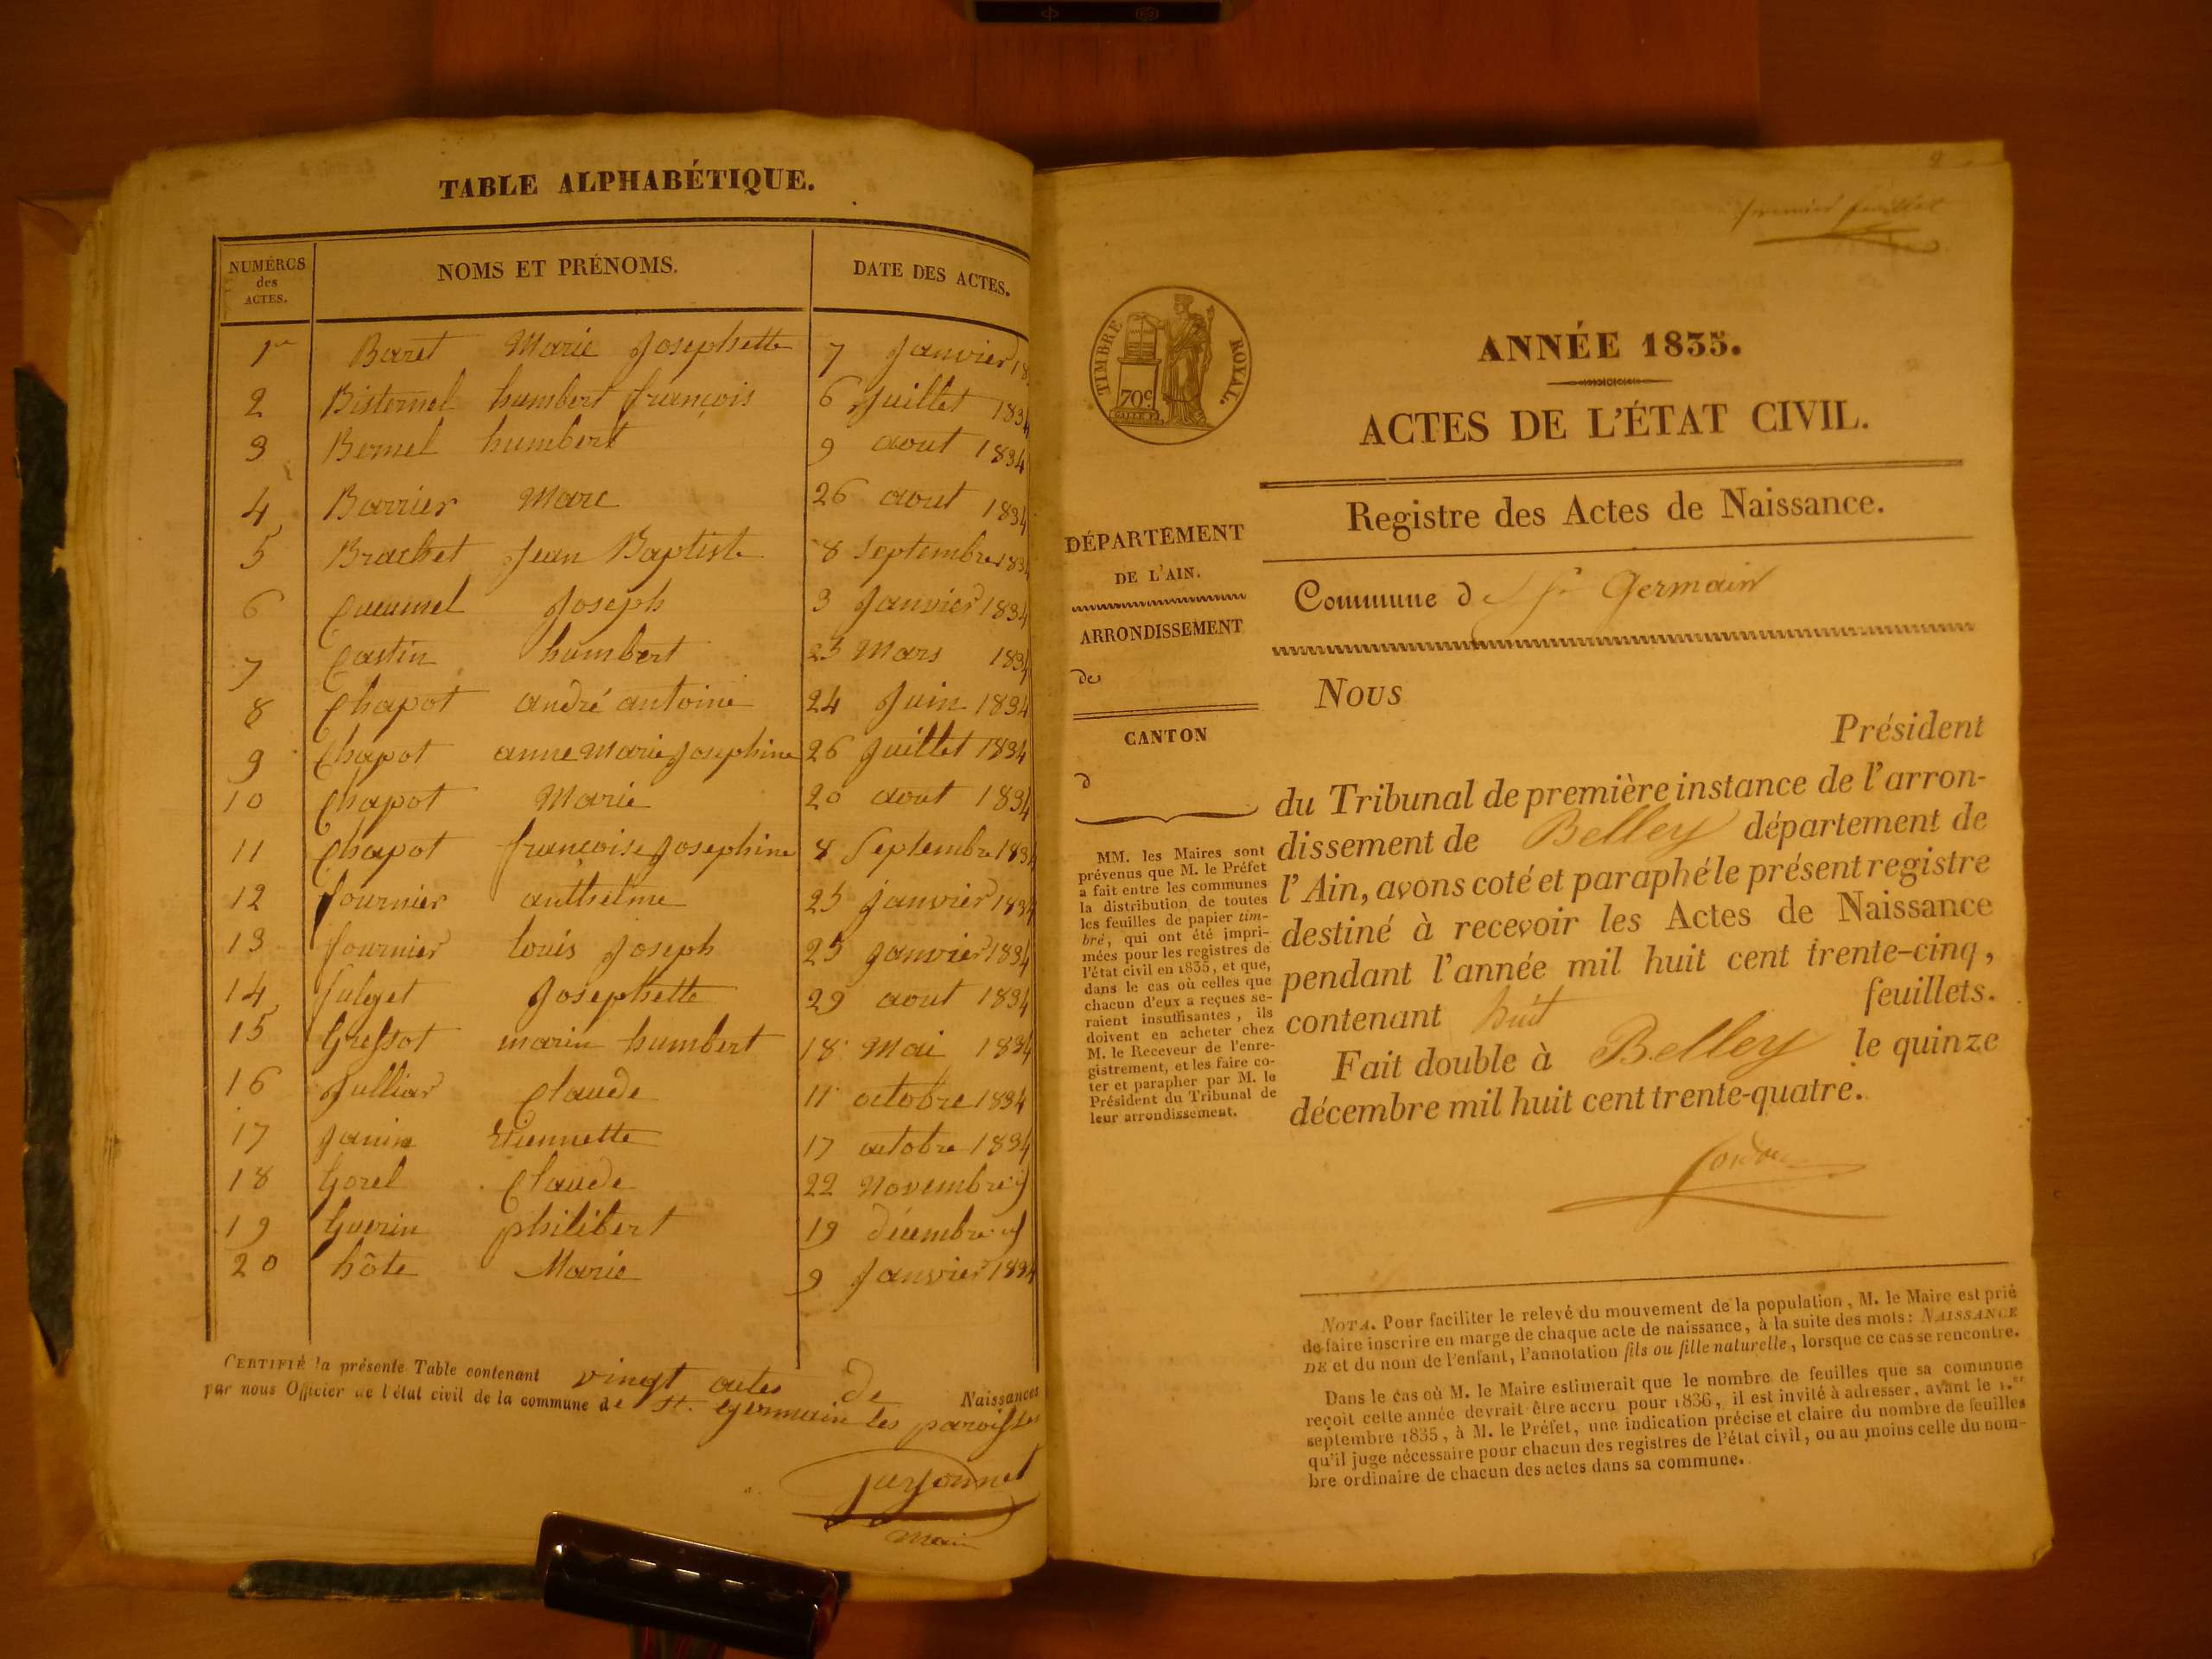 TABLE ALPHABÉTIQUE.
NUMÉROS des ACTES.
NOMS ET PRÉNOMS.
DATE DES ACTES.
1er Baret Marie Josephette 7 Janvier 18
2 Bisternel humbert françois 6 Juillet 1834
3 Bornel humbert 9 aout 1834
4 Barrier Marc 26 aout 1834
5 Brachet Jean Baptiste 8 Septembre 1834
6 Joseph 3 Janvier 1834
7 Castin humbert 23 Mars 1834
8 Chapot andré antoine 24 Juin 1834
9 Chapot anne Marie Josephine 26 Juillet 1834
10 Chapot Marie 20 aout 1834
11 Chapot françoise Josephine 8 Septembre 1834
12 fournier anthelme 25 Janvier 1834
13 fournier louis Joseph 25 Janvier 1834
14 Josephette 29 aout 1834
15 Gressot marin humbert 18 Mai 1834
16 Julliar Claude 11 octobre 1834
17 Janin Etiennette 17 octobre 1834
18 Gorel Claude 22 Novembre
19 Guerin philibert 19 décembre
20 hôte Marie 9 Janvier 1834
CERTIFIÉ la présente Table contenant vingt actes de Naissances
par nous Officier de l'état civil de la commune de St. Germain les paroisses
Maire
2
premier feuillet
TIMBRE ROYAL.
70c
ANNÉE 1835.
ACTES DE L'ÉTAT CIVIL.
Registre des Actes de Naissance.
DÉPARTEMENT
DE L'AIN.
ARRONDISSEMENT
de
CANTON
d
Commune d St Germain
Nous
Président
du Tribunal de première instance de l'arron-
dissement de Belley département de
l'Ain, avons coté et paraphé le présent registre
destiné à recevoir les Actes de Naissance
pendant l'année mil huit cent trente-cinq,
contenant huit feuillets.
Fait double à Belley le quinze
décembre mil huit cent trente-quatre.
MM. les Maires sont
prévenus que M. le Préfet
a fait entre les communes
la distribution de toutes
les feuilles de papier tim-
bré, qui ont été impri-
mées pour les registres de
l'état civil en 1835, et que,
dans le cas où celles que
chacun d'eux a reçues se-
raient insuffisantes, ils
doivent en acheter chez
M. le Receveur de l'enre-
gistrement, et les faire co-
ter et parapher par M. le
Président du Tribunal de
leur arrondissement.
NOTA. Pour faciliter le relevé du mouvement de la population, M. le Maire est prié
de faire inscrire en marge de chaque acte de naissance, à la suite des mots: NAISSANCE
DE et du nom de l'enfant, l'annotation fils ou fille naturelle, lorsque ce cas se rencontre.
Dans le cas où M. le Maire estimerait que le nombre de feuilles que sa commune
reçoit cette année devrait être accru pour 1836, il est invité à adresser, avant le 1.er
septembre 1835, à M. le Préfet, une indication précise et claire du nombre de feuilles
qu'il juge nécessaire pour chacun des registres de l'état civil, ou au moins celle du nom-
bre ordinaire de chacun des actes dans sa commune.